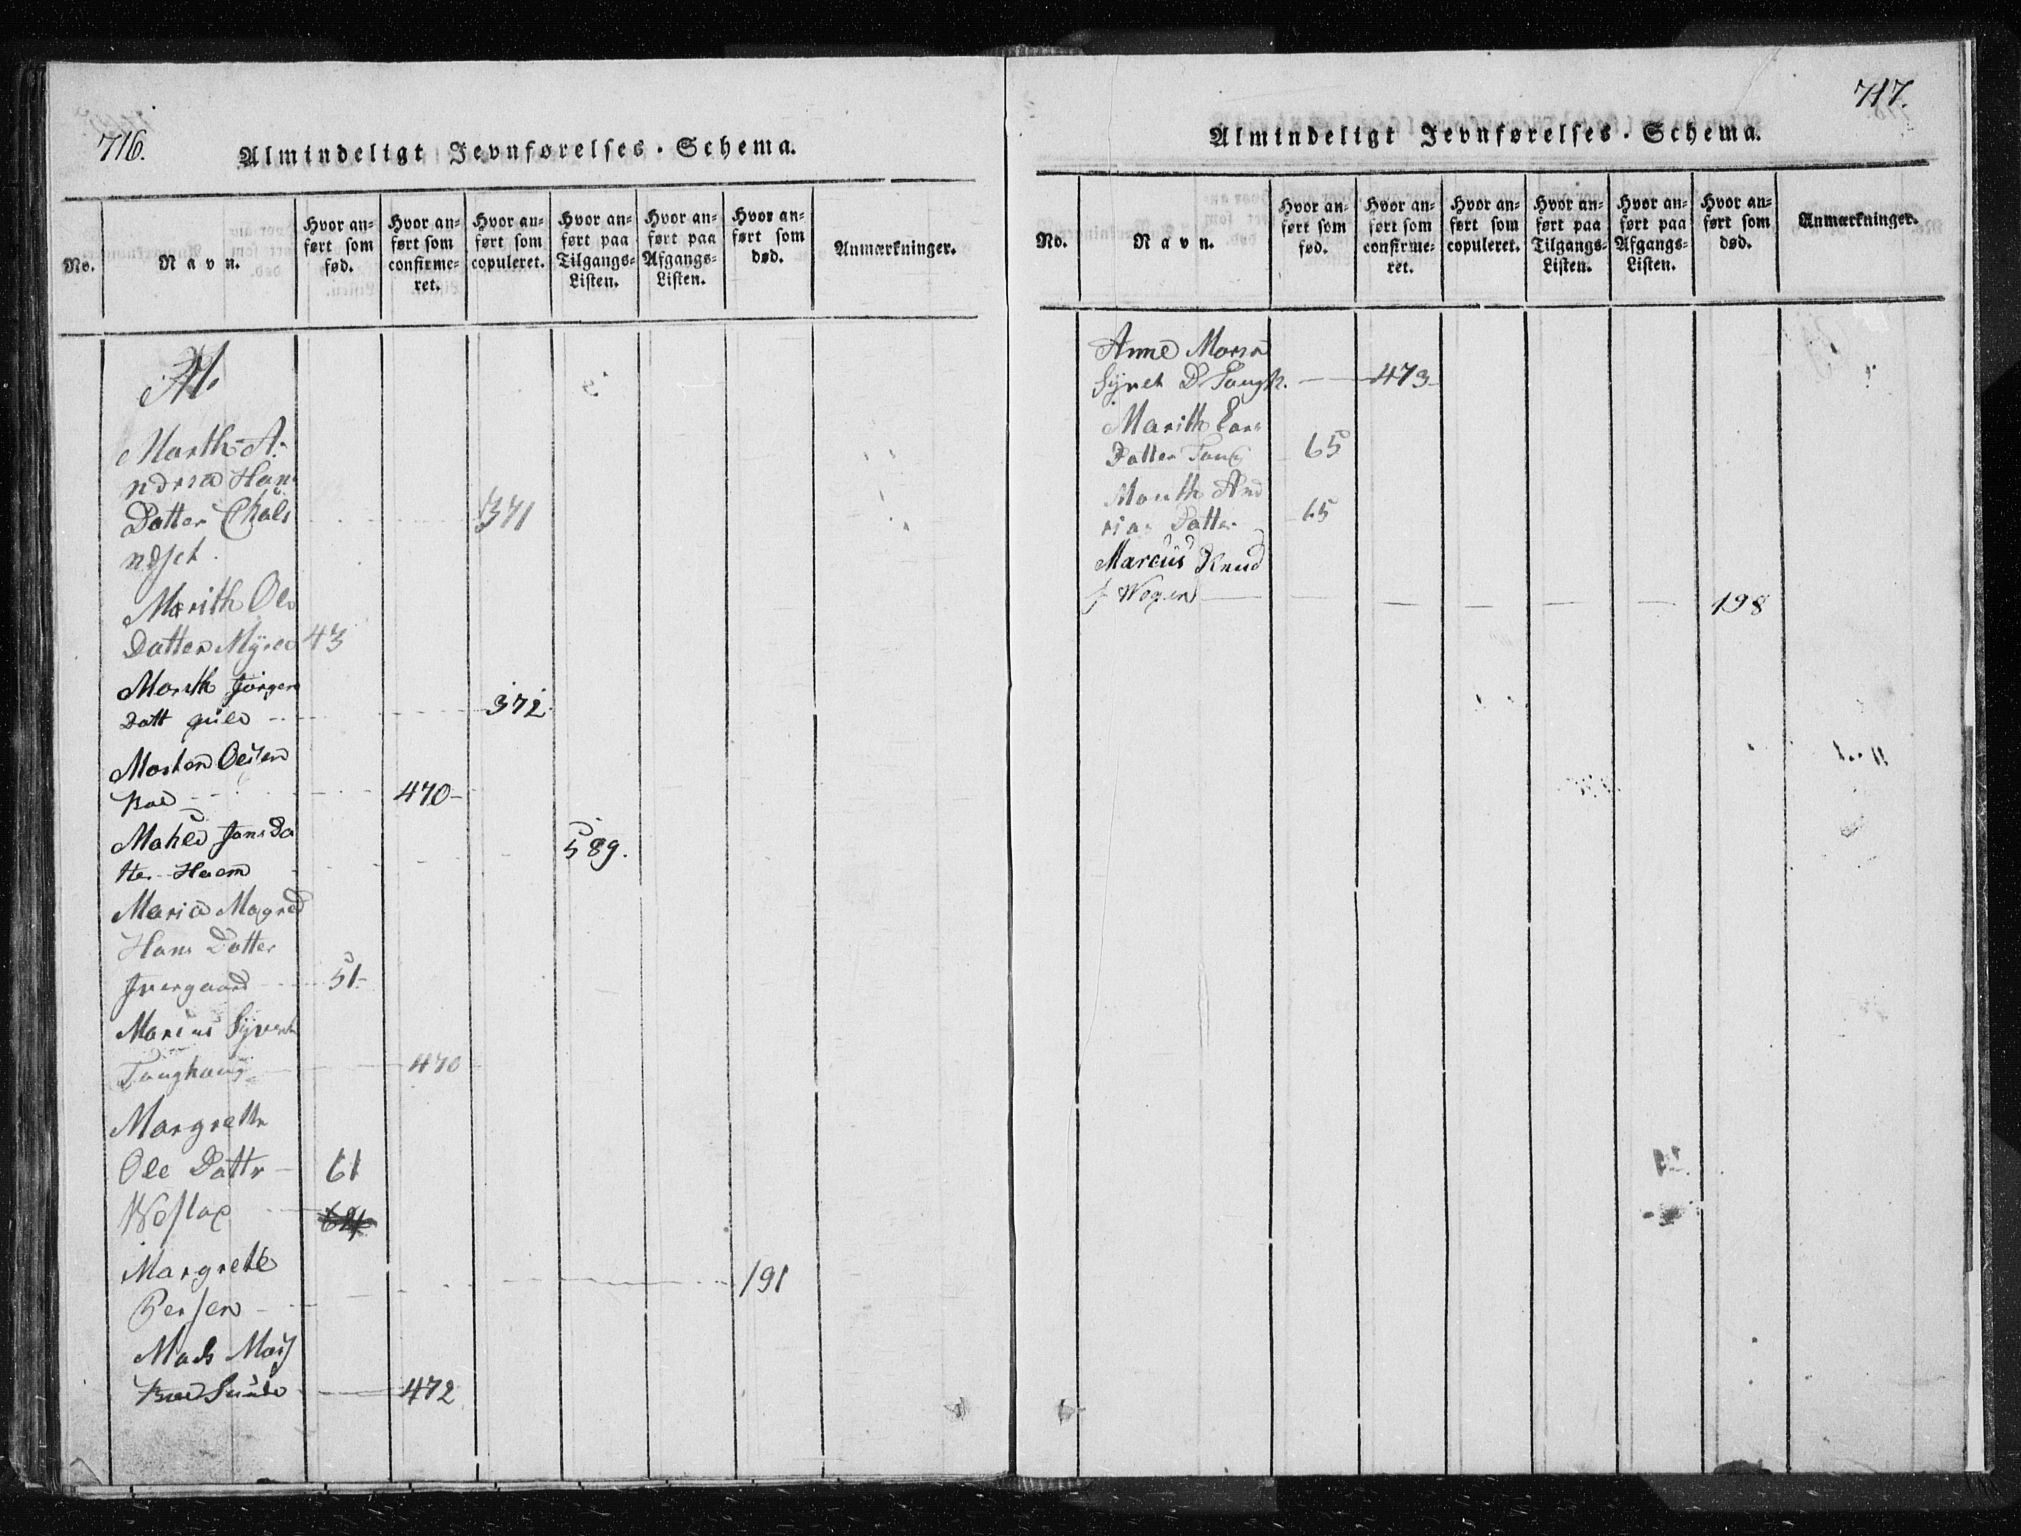 716.
Almindeligt Jevnførelses-Schema.
No.
Navn.
Hvor an-
ført som
fød.
Hvor an-
ført som
confirme-
ret.
Hvor an-
ført som
copuleret.
Hvor an-
ført paa
Tilgangs-
Listen.
Hvor an-
ført paa
Afgangs-
Listen.
Hvor an-
ført som
død.
Anmærkninger.
M.
Marth A-
ndrea Hans
Datter
ndset 371
Marith Ole
Datter Myree 43
Marith Jørgen
Datt 372
Morten Olsen
Boe 470
Jons Da
tter 589.
Maria Magred
Hans Datter
Ivergaard 51
Marius Syvert
Tanghaug 470
Margrethe
Ole Dattr 61
64
Margrete
Persen 191
Mads
Sunde 472
717.
Almindeligt Jevnførelses-Schema.
No.
Navn.
Hvor an-
ført som
fød.
Hvor an-
ført som
confirme-
ret.
Hvor an-
ført som
copuleret.
Hvor an-
ført paa
Tilgangs-
Listen.
Hvor an-
ført paa
Afgangs-
Listen.
Hvor an-
ført som
død.
Anmærkninger.
Anne
Syvet D 473
Marith Lars
Datter Tang 65
And
rias Datter 65
Marcus Knud
s Wogen 198